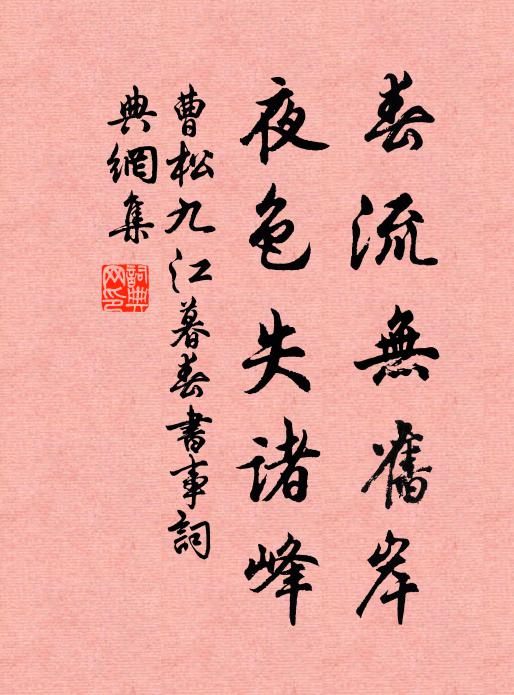 春流無舊岸
夜色失諸峰
曹松九江暮春書事詞
典網集
詞典网印